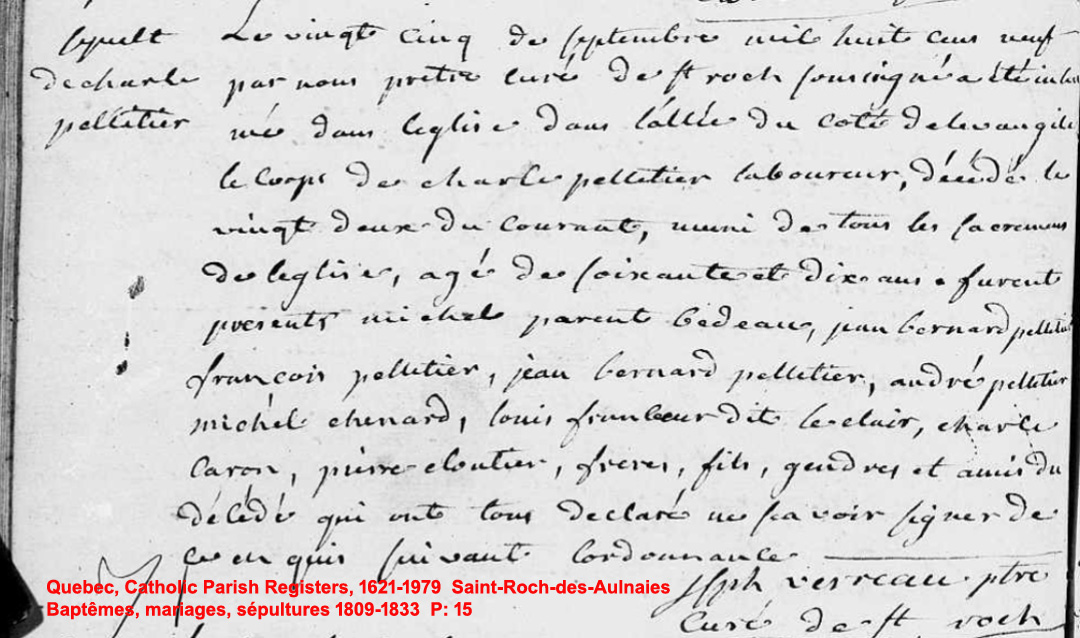 sepult
de charle
pelletier
Le vingt cinq de septembre mil huit cens neuf
par nous prêtre curé de st roch sousigné a été inhu
mé dans leglise dans l'allée du coté de levangile
le corps de charle pelletier laboureur, décédé le
vingt deux du courant, muni de tous les sacremens
de leglise, agé de soixante et dix ans. furent
presents michel parent bedeau, jean bernard pelletier
françois pelletier, jean bernard pelletier, andré pelletier
michel chenard, louis francoeur dit leclair, charle
caron, pierre cloutier, freres, fils, gendres et amis du
décédé qui ont tous declaré ne savoir signer de
ce enquis suivant lordonnance
Jsph verreau ptre
Curé de st roch
Quebec, Catholic Parish Registers, 1621-1979 Saint-Roch-des-Aulnaies
Baptêmes, mariages, sépultures 1809-1833 P: 15